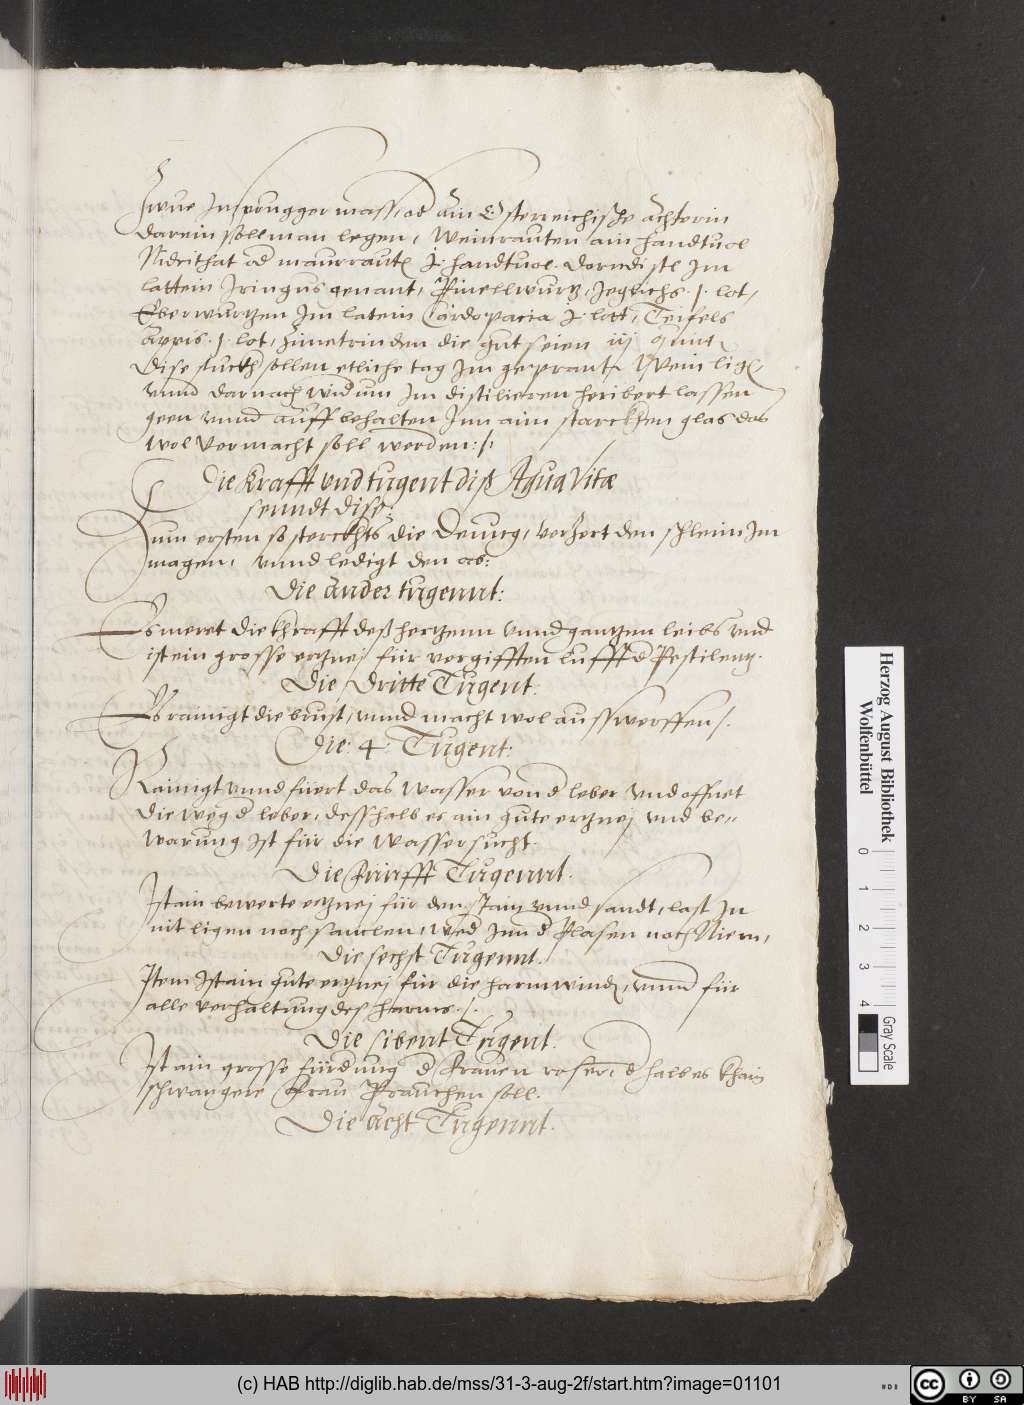 Zwue Insprugger mass, od ain Österreichische achterin
darein soll man legen, Weinrauten ain handtuol
Nidrithat od maurraut j. handtuol. dorndistl Im
lattein Iringus genant, Pinellwurtz, Jegelichs .j. lot,
Eberwurtzen Im latein Cardopacia j. lott, Teufels
apris .j. lot, Zimetrinden die gut seien iij quint
Dise stuckh sollen etliche tag Im geprant Wein lig
vnnd darnach widum Im distilieren heribert lassen
geen vnnd auff behalten Inn aim starckhen glas das
wol vermacht soll werden:/:
Die krafft vnd tugent diß Aqua Vitæ
senndt dise:
Zum ersten so sterckhts die Deuug, verzert den schleim Im
magen, vnnd ledigt den ab:
Die ander tugennt:
Es meret die khrafft deß hertzenn vnnd gantzen leibs vnd
ist ein grosse ertznej für vergifften lufft d Pestilentz.
Die Dritte Tugent:
Es rainigt die brust, vnnd macht wol ausswerffen/.
Die: 4: Tugent:
Rainigt vnnd füert das wasser von d leber vnd offnet
die weg d leber, desshalb es ain gute ertznej vnd be=
warung Ist für die wassersucht.
Die Fünfft Tugennt.
Ist ain bewerte ertznej für den stain vnnd sandt, last In
nit ligen noch samlen, wed Inn d Plasen noch Niern,
Die sechst Tugennt.
Item Ist ain gute ertznej für die harmwind, vnnd für
alle verhaltung des harms./.
Die sibent Tugent.
Ist ain grosse fürdung d Frauen rosen, d halb es khain
schwangere Frau Prauchen soll.
Die acht Tugennt.
Herzog August Bibliothek
Wolfenbüttel
0 1 2 3 4
Gray Scale
(c) HAB http://diglib.hab.de/mss/31-3-aug-2f/start.htm?image=01101
cc BY SA